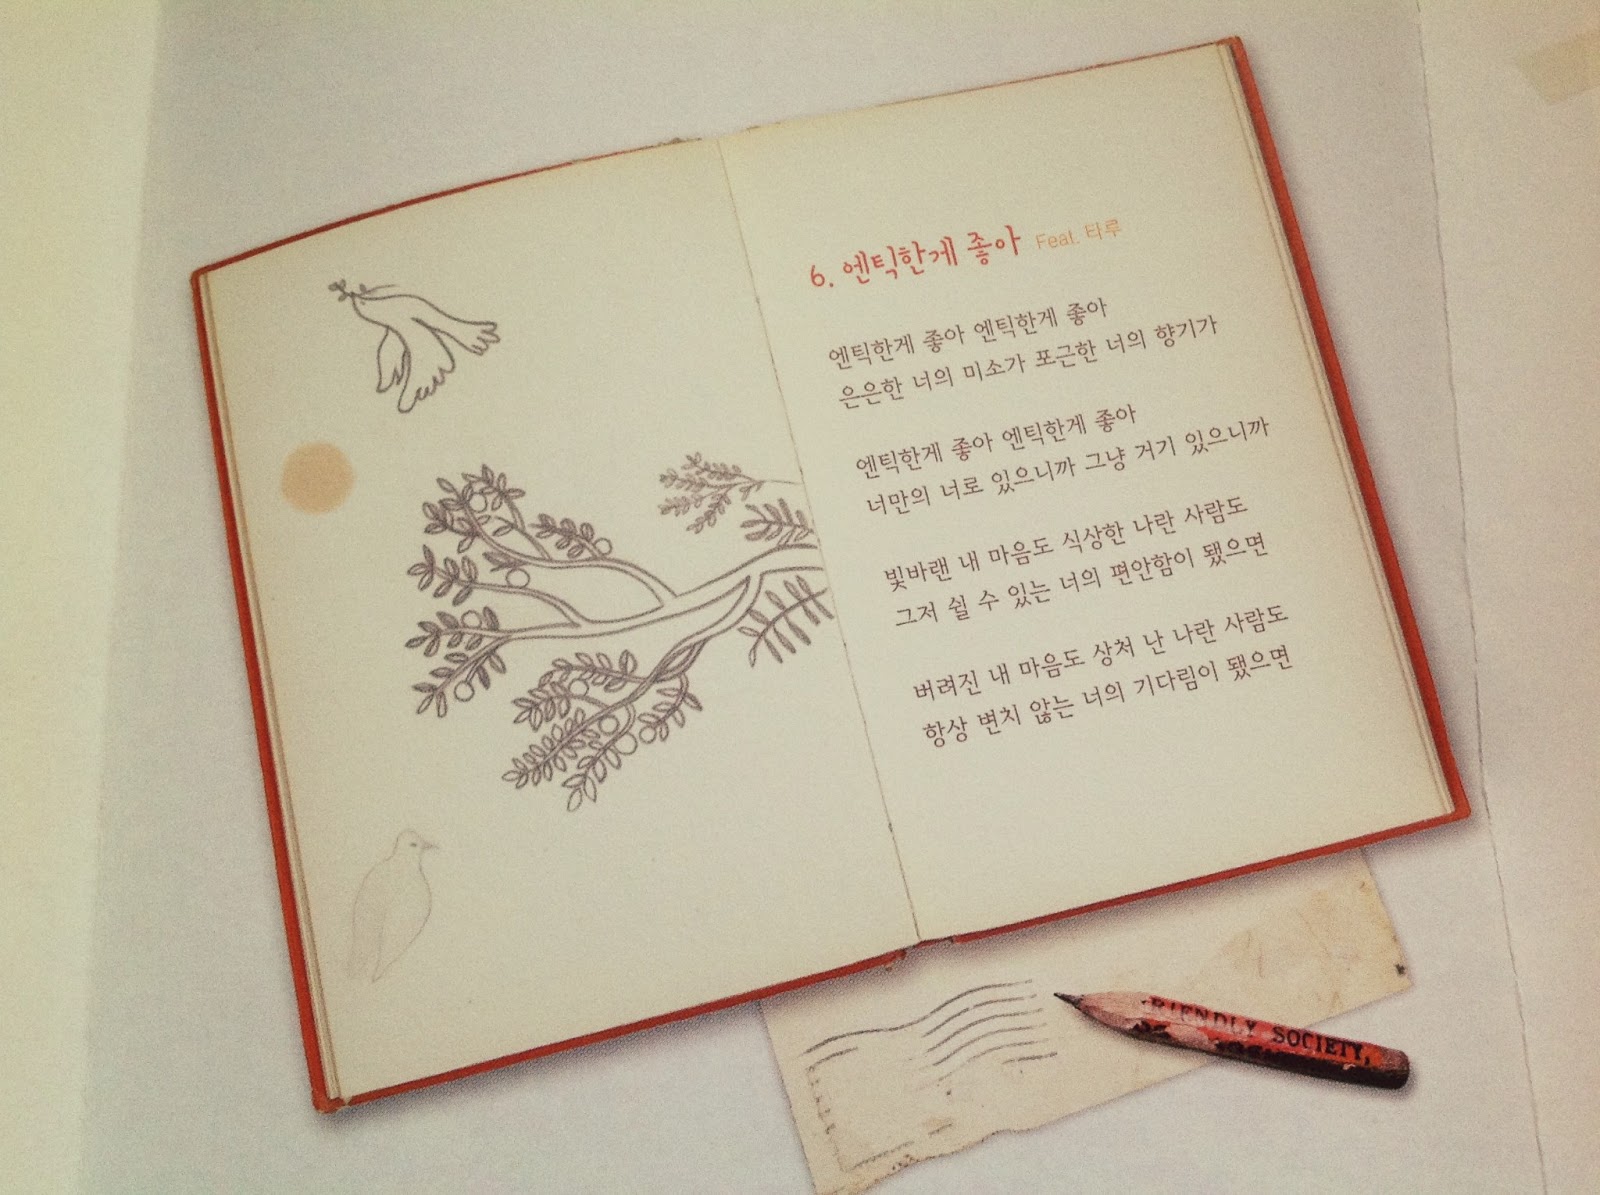 6. 엔틱한게 좋아 Feat. 타루
엔틱한게 좋아 엔틱한게 좋아
은은한 너의 미소가 포근한 너의 향기가
엔틱한게 좋아 엔틱한게 좋아
너만의 너로 있으니까 그냥 거기 있으니까
빛바랜 내 마음도 식상한 나란 사람도
그저 쉴 수 있는 너의 편안함이 됐으면
버려진 내 마음도 상처 난 나란 사람도
항상 변치 않는 너의 기다림이 됐으면
FRIENDLY SOCIETY,